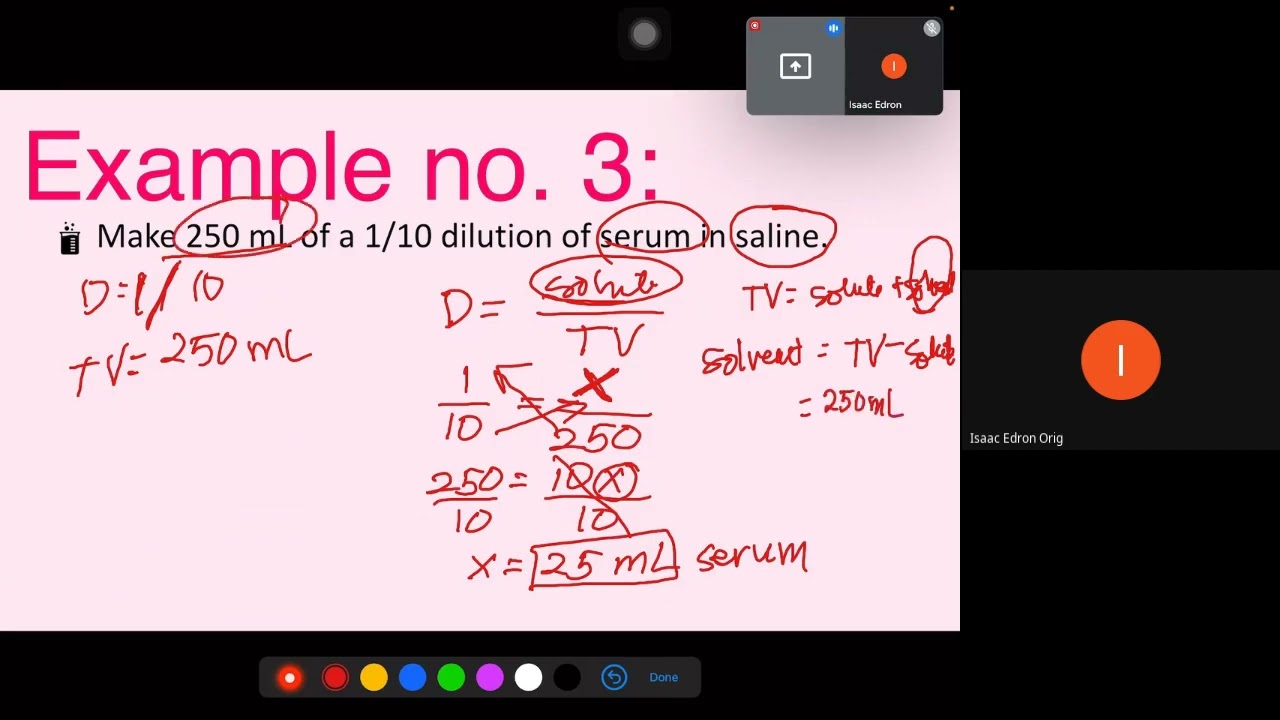 Isaac Edron
Example no. 3:
Make 250 mL of a 1/10 dilution of serum in saline.
D=1/10
TV= 250 mL
D= solute
TV
1 = x
10 250
250 = 10(x)
10 10
x= 25 mL serum
TV= solute +
solvent = TV-solute
= 250mL
I
I
Isaac Edron Orig
Done